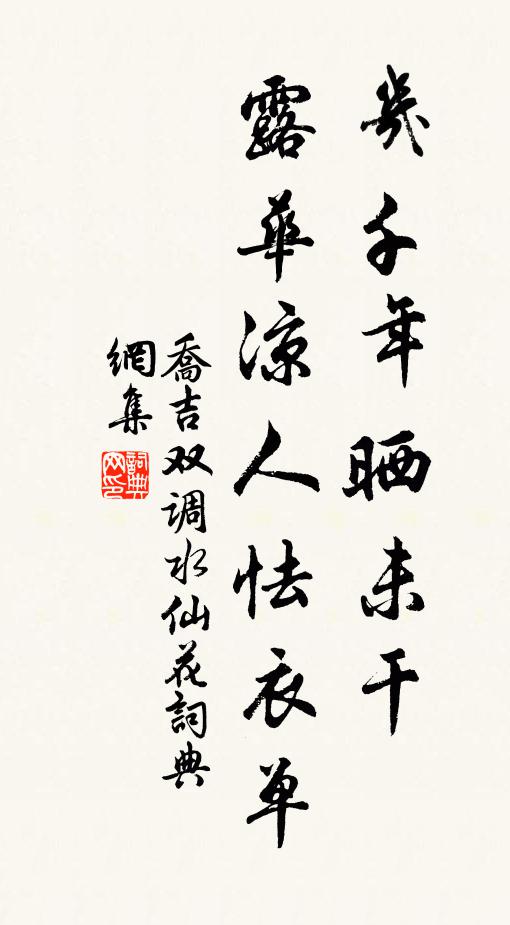 幾千年晒未干
露華凉人怯衣单
喬吉双调水仙花詞典
網集
詞典网印